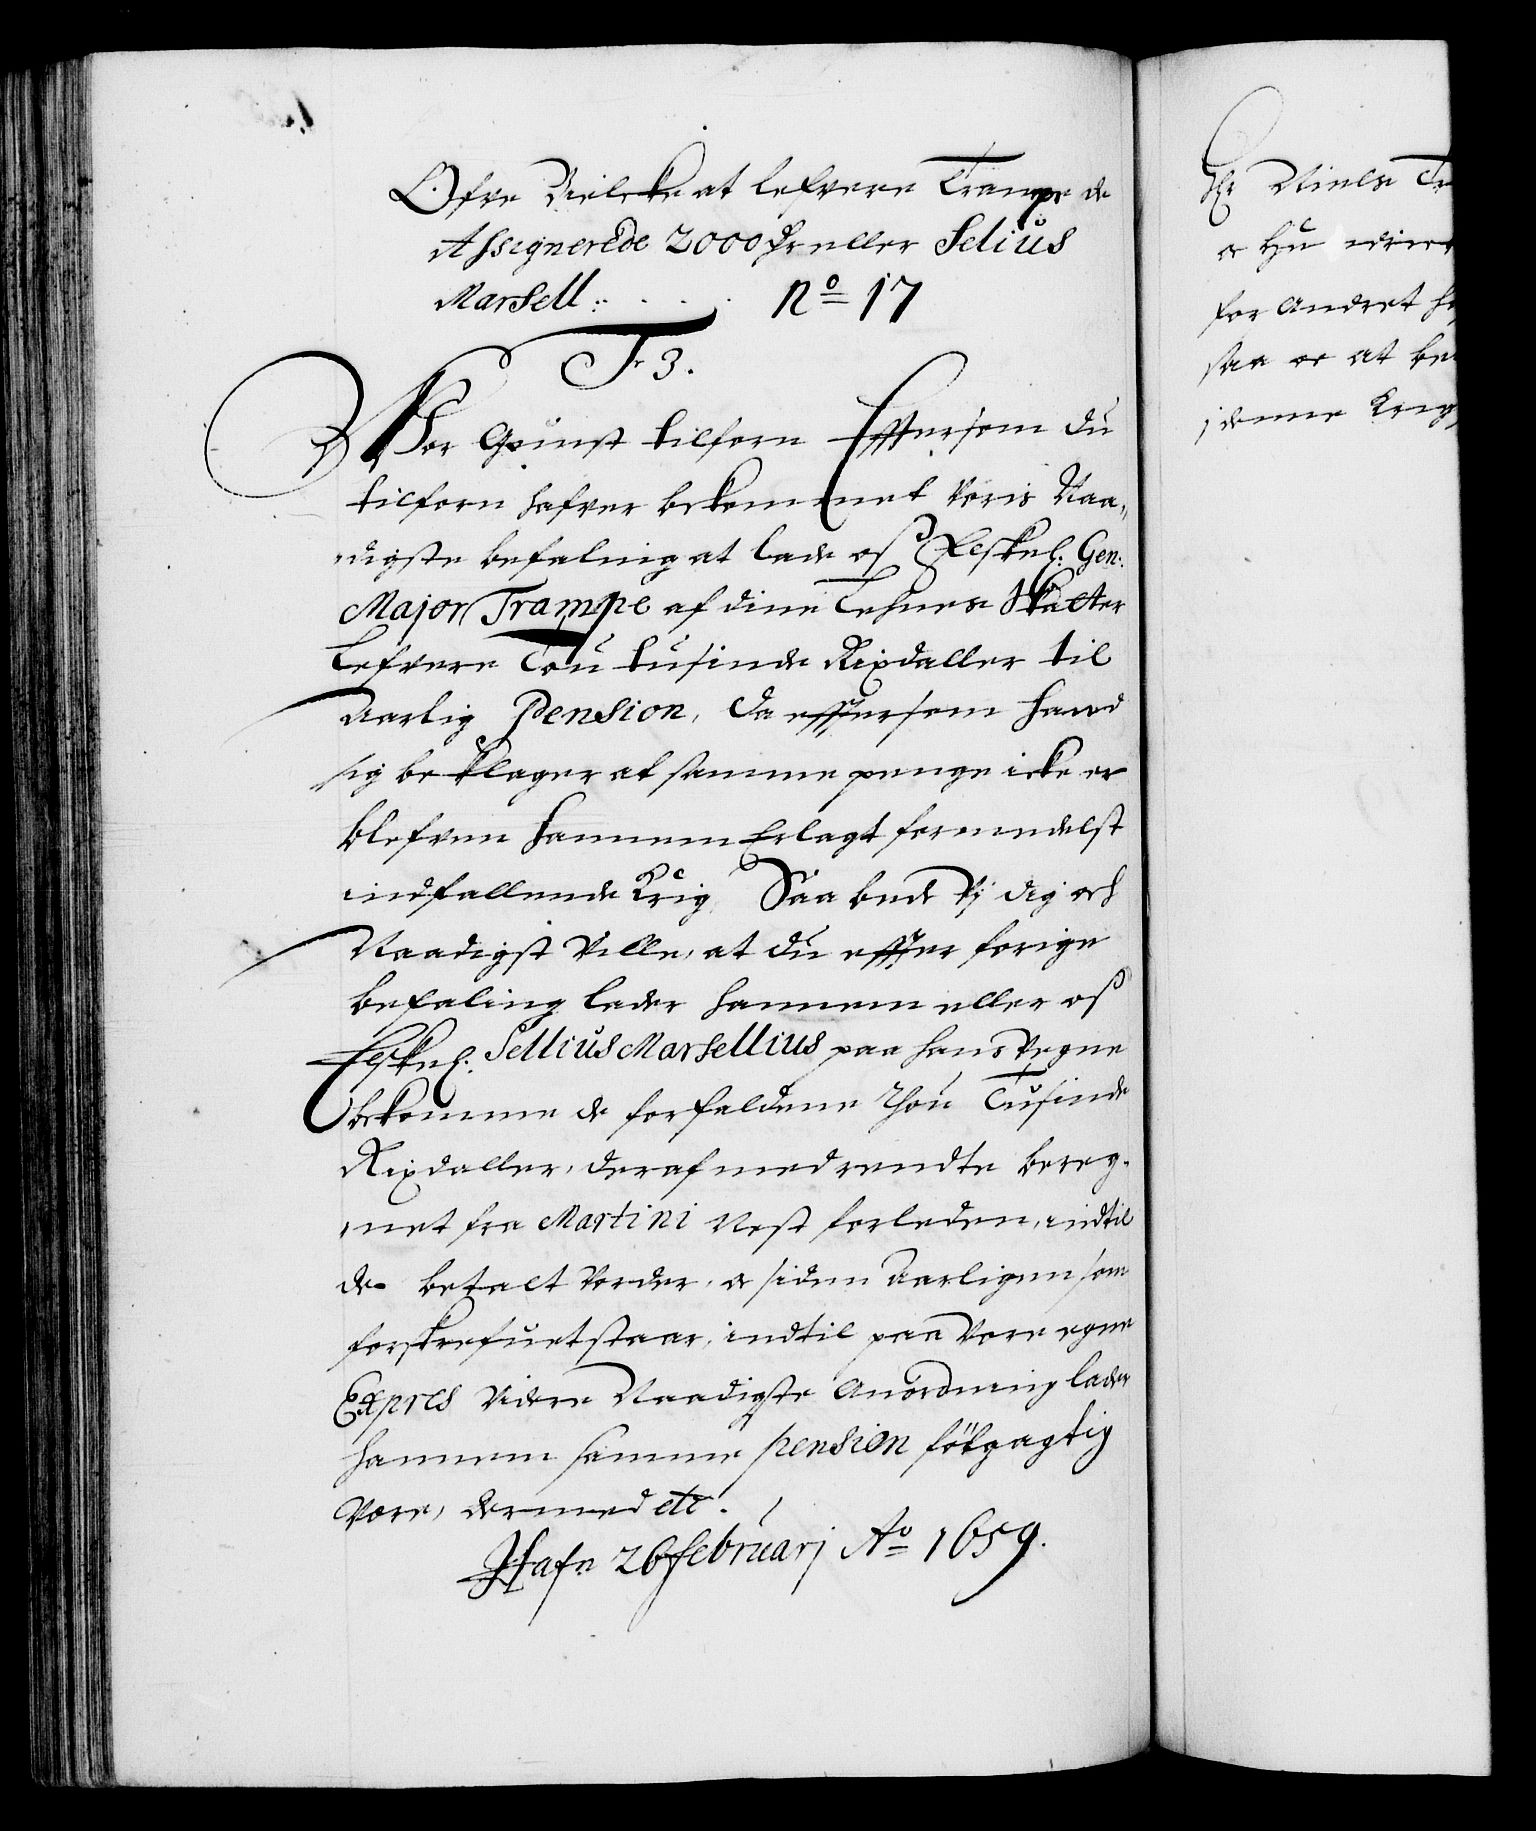 Ofve Bielcke at lefvere Trampe de
Assignerede 2000 Dr eller Selius
Marsell :. . . . No 17
F 3.
Vor Gunst tilforn Effersom du
tilforn hafver bekommet Voris Naa„
digste befaling at lade os Elskel: Gen:
Major Trampe af dine Lehnes Skatter
Lefvere Tou tusinde Rixdaller til
Aarlig Pension, da effersom hand
sig beklager at samme penge icke er
blefven hannem Erlagt formedelst
indfallende Krig, Saa bede Vj dig och
Naadigst Ville, at du effter forige
befaling lader hannem eller os
Elskel: Sellius Marsellius paa hans Vegne
bekomme de forfaldene Thou Tusinde
Rixdaller, deraf med rendte bereg„
net fra Martini Nest forleden, indtil
de betalt Vorder, oc siden Aarligen som
forskrefuet staar, indtil paa Vore egne
Expres Videre Naadigste Anordning lader
hannem samme pension følgagtig
Være, dermed etc.
Hafn 26 februarj Ao 1659.
Hr Niels Tr
oc Hu
for Andret
saa oc at be
j denne Krig